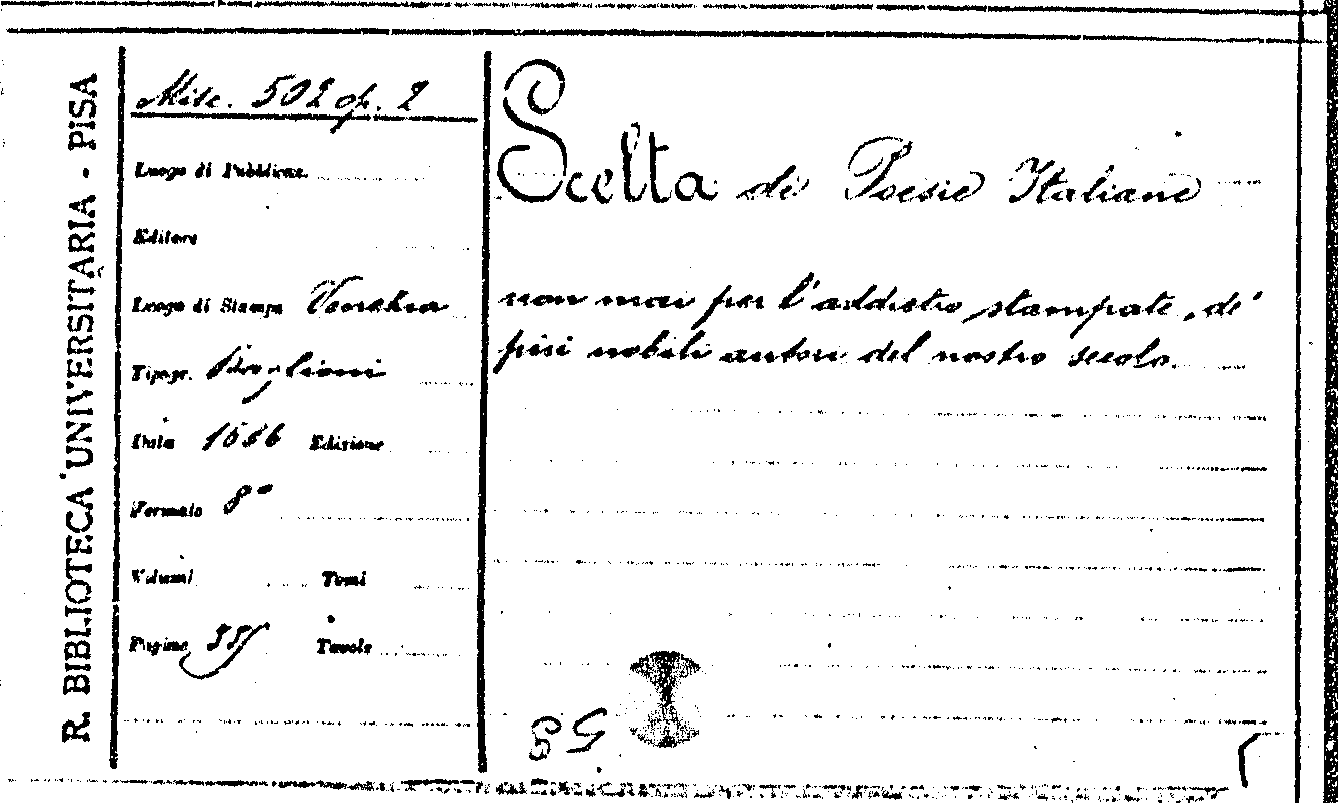 R. BIBLIOTECA UNIVERSITARIA - PISA
Misc. 502 op. 2
Luogo di Pubblicaz.
Editore
Luogo di Stampa Venezia
Tipogr. Baglioni
Data 1686 Edizione
Formato 8°
Volumi Tomi
Pagine Tavole
Scelta di Poesie Italiane
non mai per l'addietro stampate, de'
più nobili autori del nostro secolo.